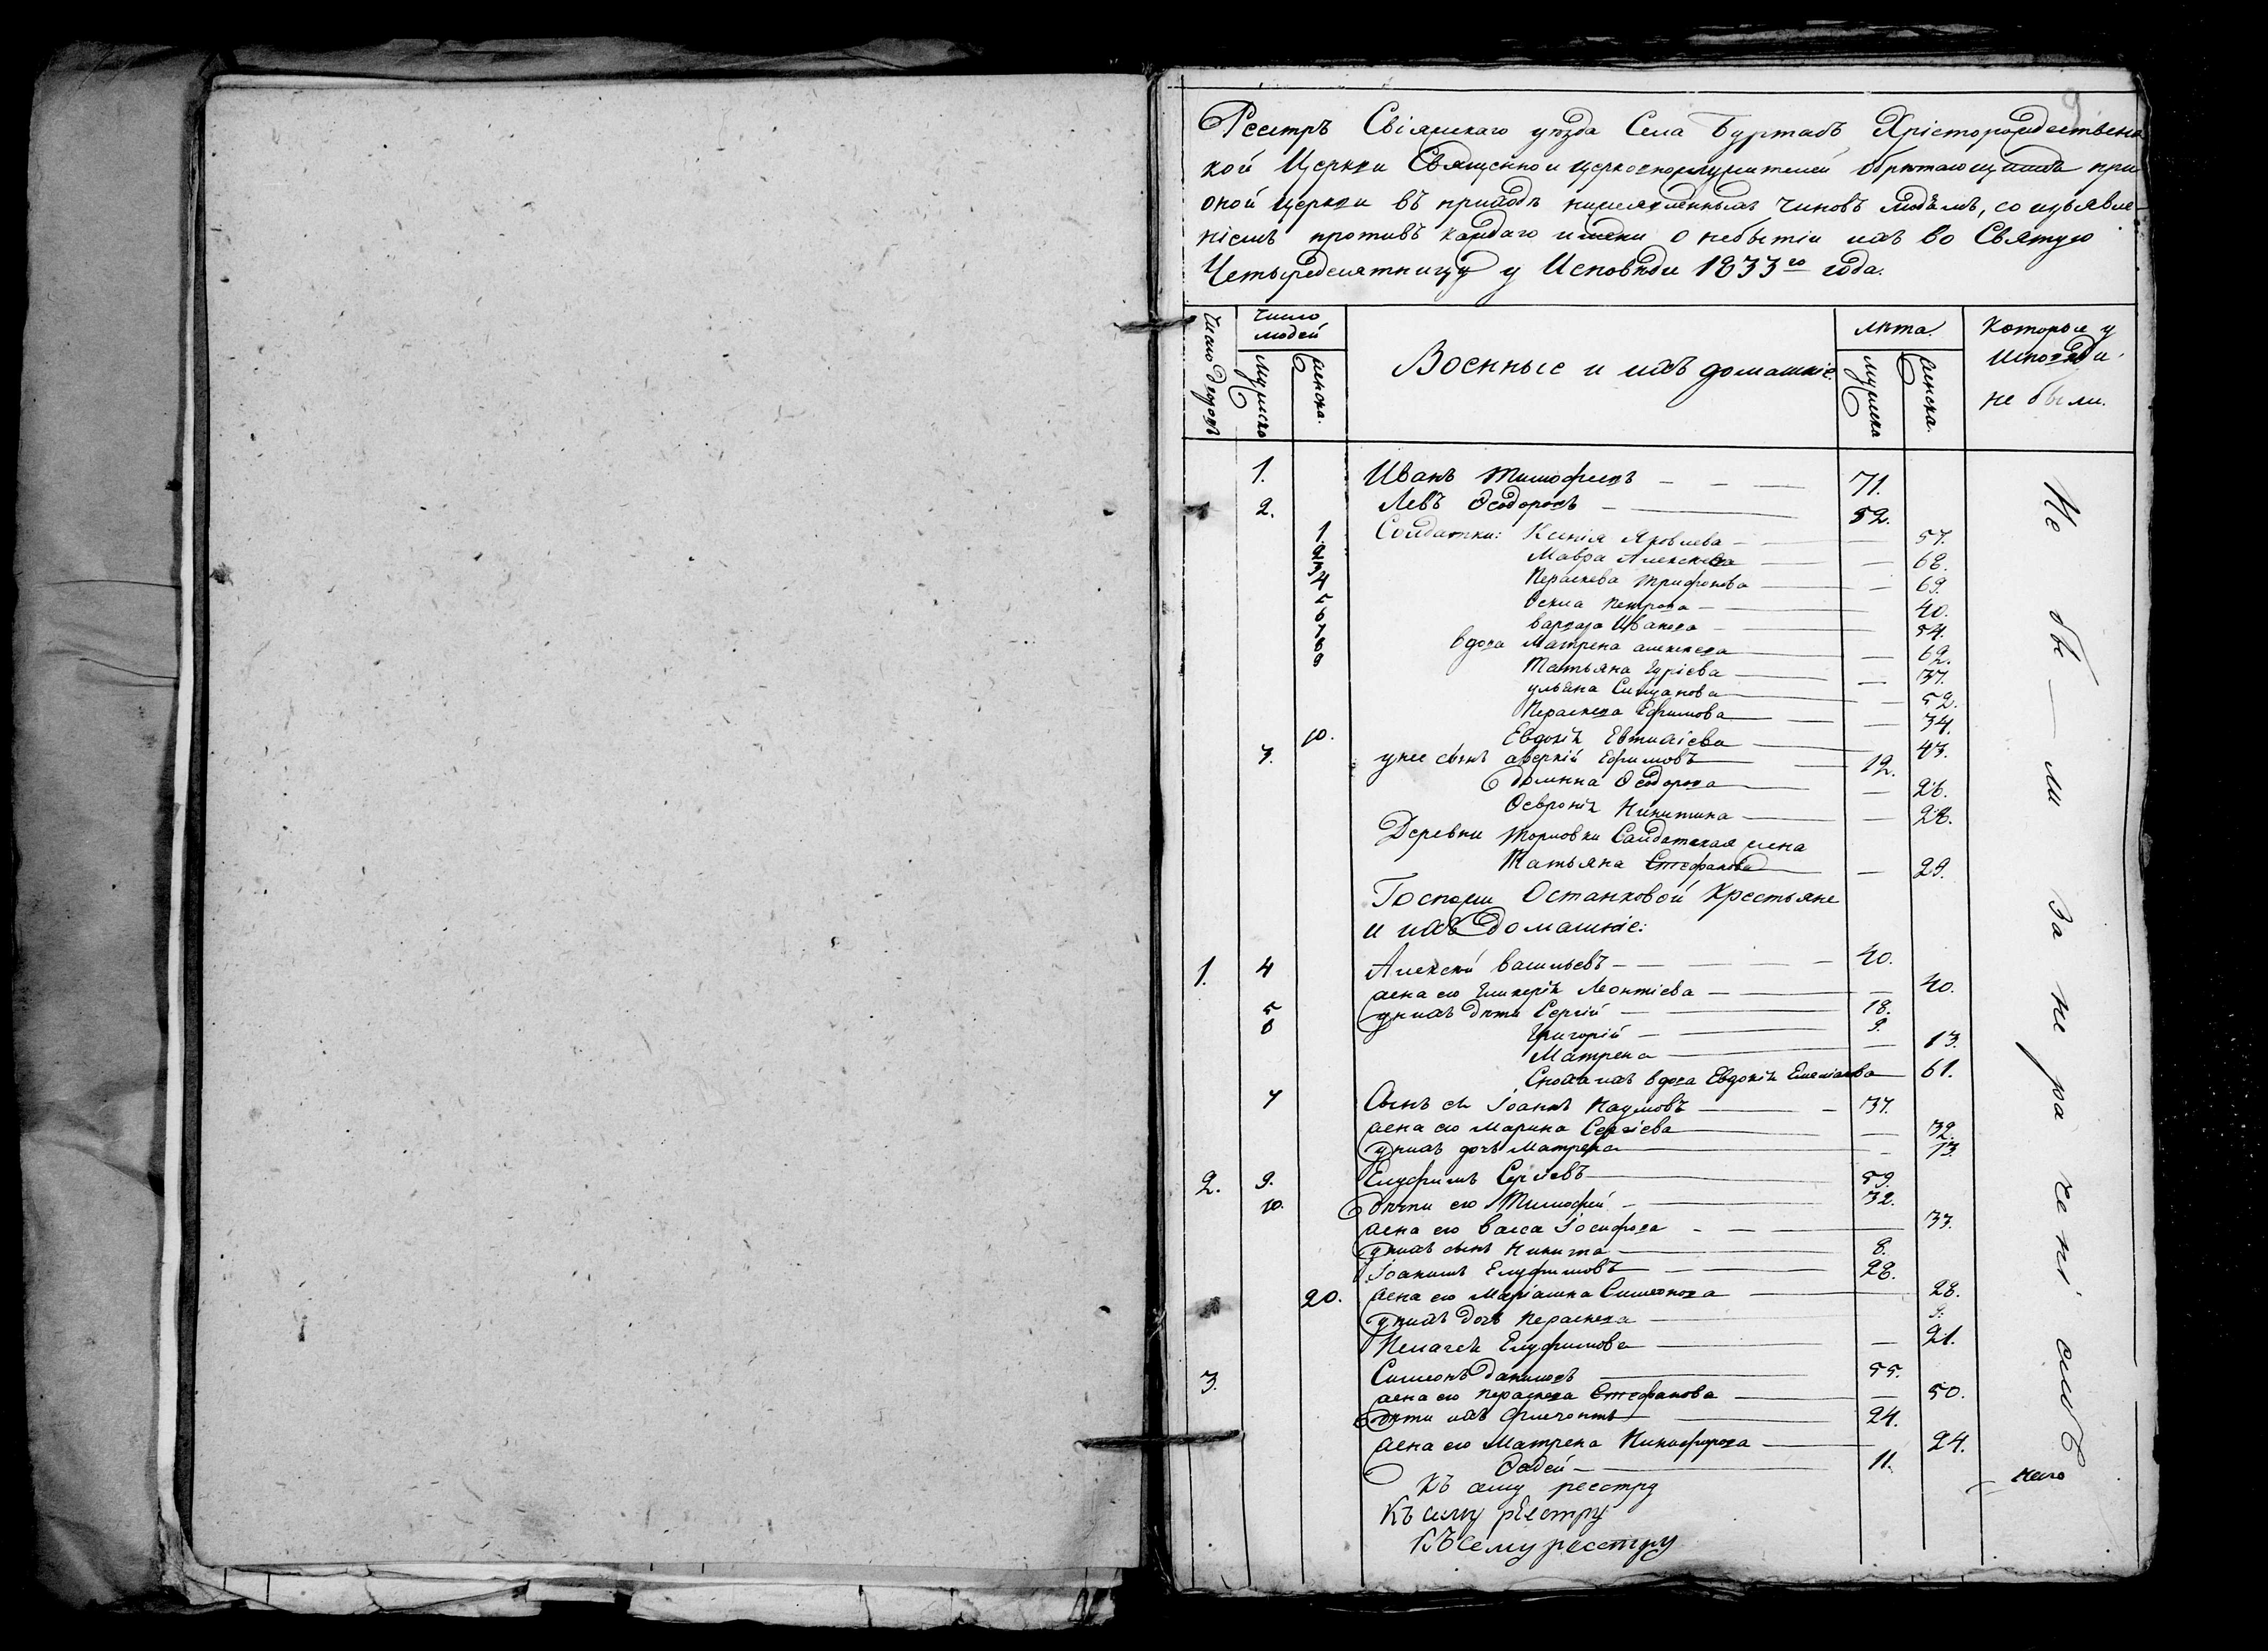 9
Реестръ Свіяжскаго уѣзда Села Буртасъ Христорождествен
кой Церкви Священно и церковнослужителей обрѣтающимся при
оной церкви въ приходѣ нижеявленныхъ чиновъ людямъ, со изъявле-
ніемъ противъ каждаго имени о небытіи ихъ во Святую
Четыредесятницу у Исповѣди 1833го года.
Число дворовъ
Число людей
мужеска
женска.
Военные и ихъ домашніе.
лѣта.
мужеска
женска.
Которые у Исповѣди не были.
1. Иванъ Тимофеевъ 71.
2. Левъ Ѳеодоровъ 52.
1. Солдатки: Ксенія Яковлева 57.
2 Мавра Алексеева 68.
3 Параскева Трифонова 69.
4 Ѳекла Петрова 40.
5 Варвара Иванова 54.
6 вдова Матрена алексеева 62.
7 Татьяна Гуріева 37.
8 ульяна 52.
9 Параскева Ефимова 34.
10. Евдокія Евтихіева 43.
3. у нее сынъ аверкій Ефимовъ 12.
Домна Ѳеодорова 26.
Ѳевронія Никитина 28.
Деревни Солдатская жена
Татьяна Стефанова 29.
Госпожи Останковой Крестьяне
и ихъ домашніе:
1. 4 Алексѣй Васильевъ 40.
жена его Гликерія Леонтіева 40.
5 у нихъ дѣти Сергій 18.
6 Григорій 9.
Матрена 13.
Сноха ихъ вдова Евдокія 61.
7 Сынъ ея Іоаннъ Наумовъ 37.
жена его Марина Сергіева 32.
у нихъ дочь Матрена 13.
2. 9. Елуфимъ Сергіевъ 59.
10. дѣти его Тимофей 32.
жена его Васса Іосифова 33.
у нихъ сынъ Никита 8.
Іоакимъ Елуфимовъ 28.
20. жена его Маріамна Симеонова 28.
у нихъ дочь Параскева
Пелагея Елуфимова 21.
3. Симеонъ Даниловъ 55.
жена его Параскева Стефанова 50.
дѣти ихъ Флегонтъ 24.
жена его Матрена Никифорова 24.
Ѳадей 11.
Къ сему реестру
Къ сему реестру
Къ сему реестру
Не были за нераченіемъ